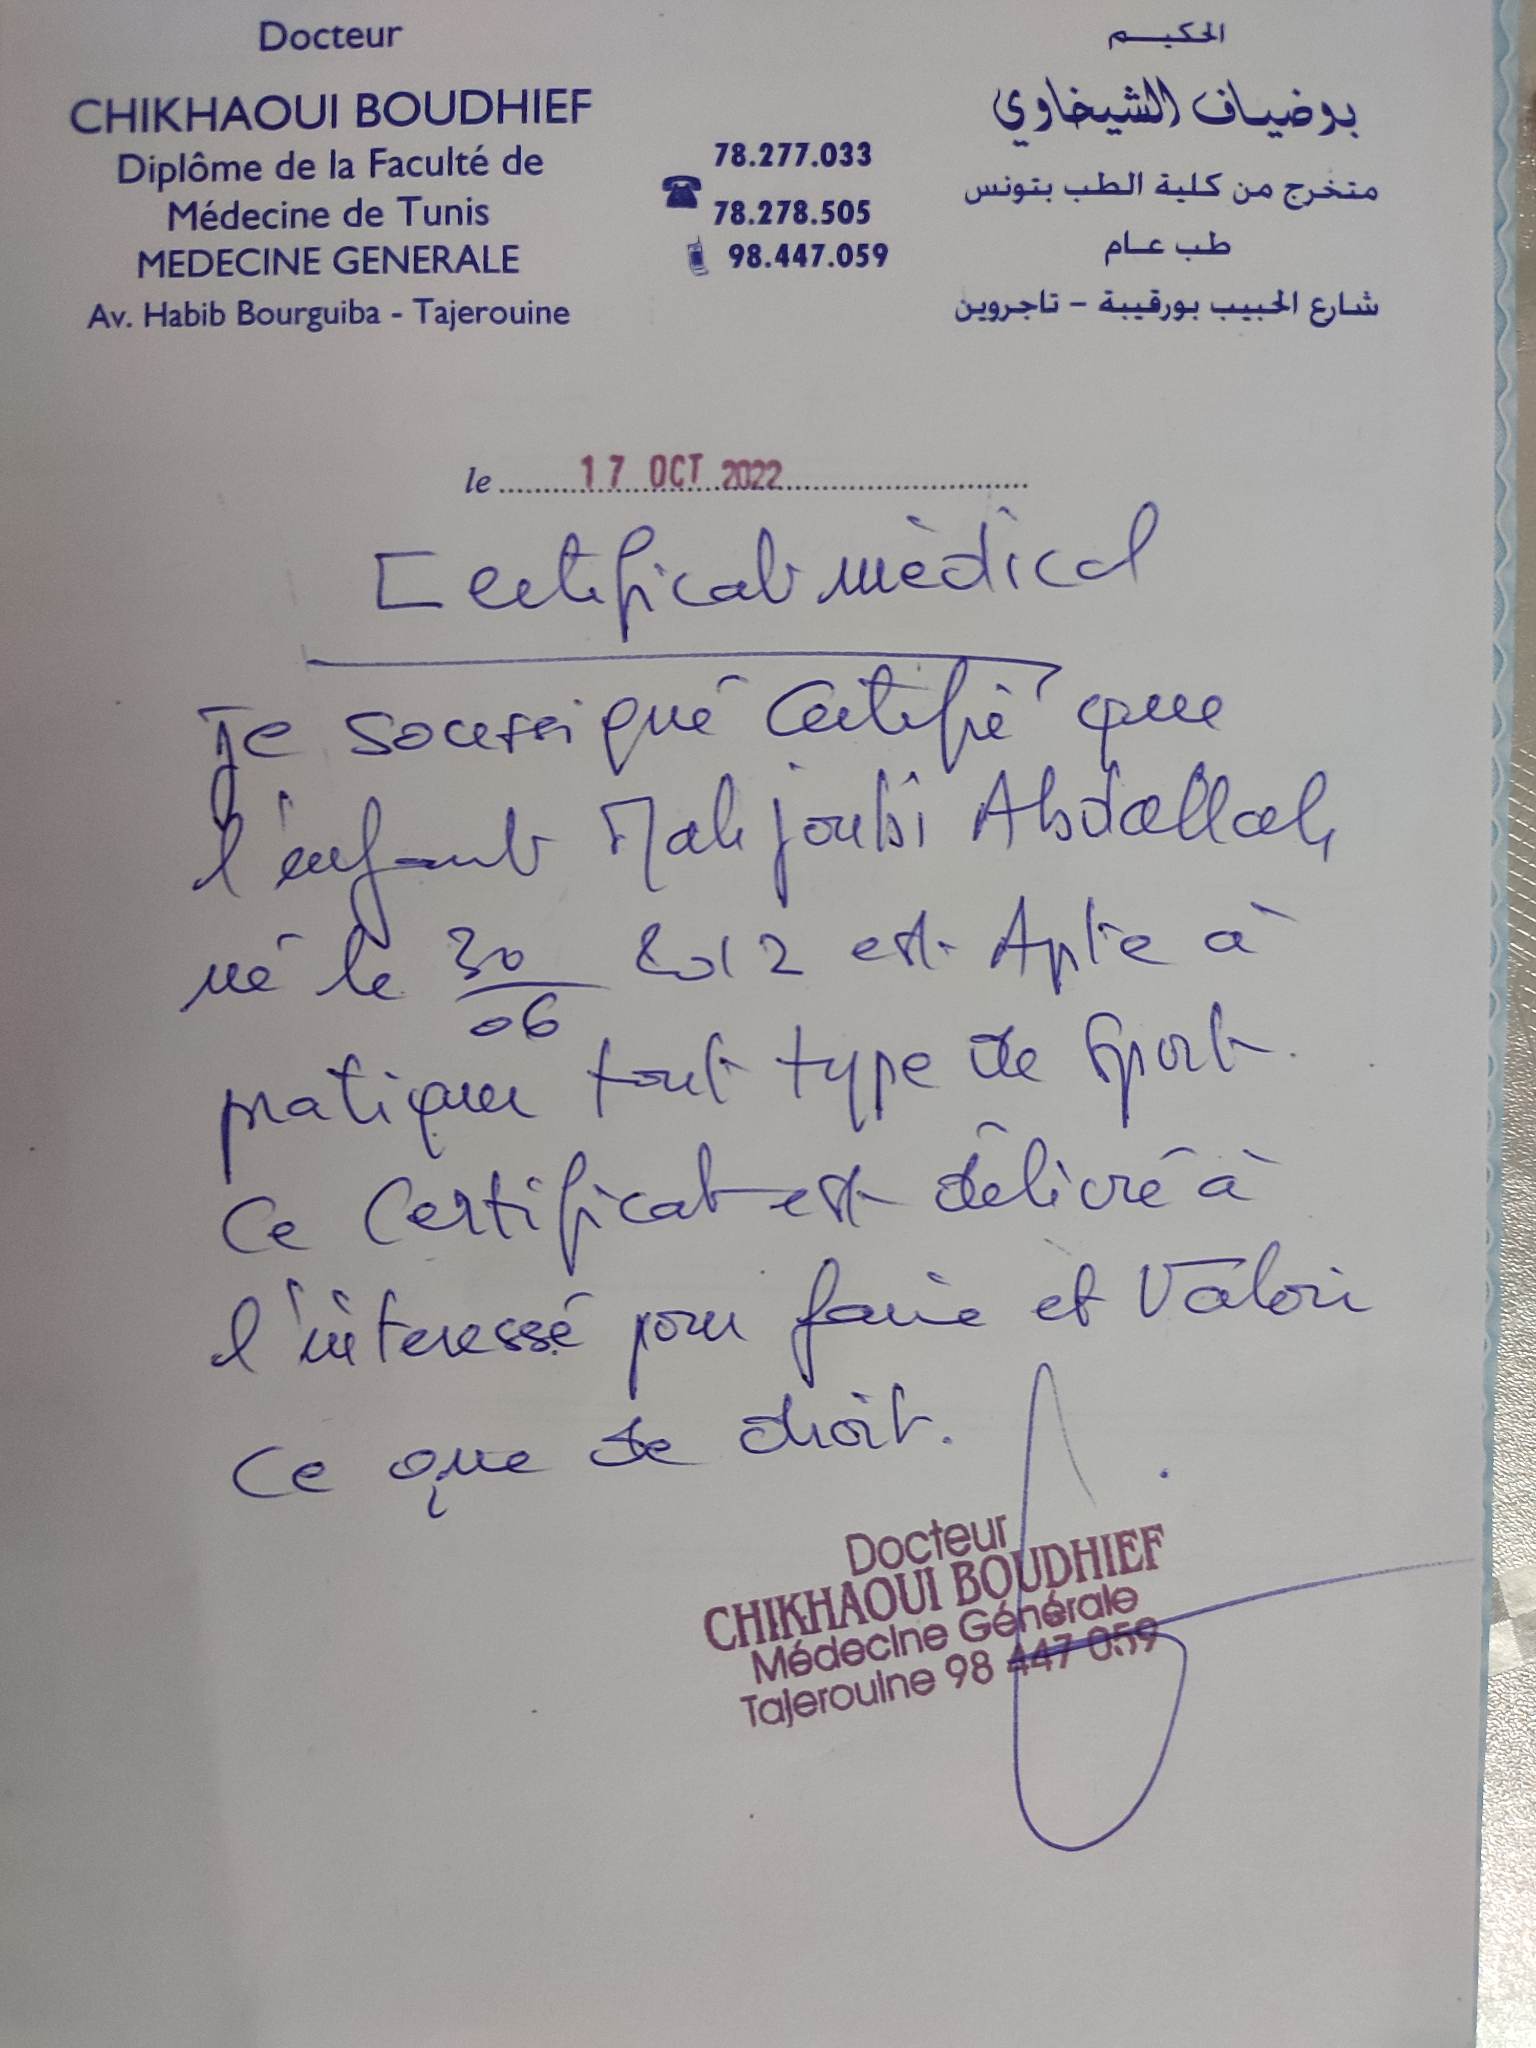 Docteur
CHIKHAOUI BOUDHIEF
Diplôme de la Faculté de
Médecine de Tunis
MEDECINE GENERALE
Av. Habib Bourguiba - Tajerouine
78.277.033
78.278.505
98.447.059
الحكيم
بوضياف الشيخاوي
متخرج من كلية الطب بتونس
طب عام
شارع الحبيب بورقيبة - تاجروين
le 17 OCT 2022
Certificat mèdical
Je soussigné Certifié que
l'enfant Mahjoubi Abdallah
né le 30/06 2012 est Apte à
pratiquer tout type de Sport.
Ce Certificat est délivré à
l'interessé pour faire et Valoir
Ce que de droit.
Docteur
CHIKHAOUI BOUDHIEF
Médecine Générale
Tajerouine 98 447 059